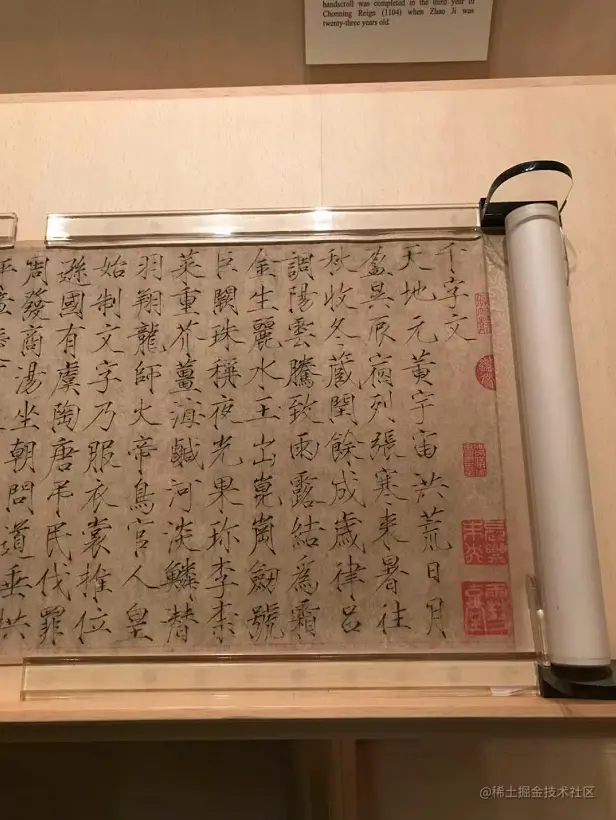 handscroll was completed in the third year of
Chonning Reign (1104) when Zhao Ji was
twenty-three years old.
千字文
天地元黃宇宙洪荒日月
盈昃辰宿列張寒来暑往
秋收冬藏閏餘成歲律呂
調陽雲騰致雨露結爲霜
金生麗水玉出崑崗劒號
巨闕珠稱夜光果珍李柰
菜重芥薑海鹹河淡鱗潛
羽翔龍師火帝鳥官人皇
始制文字乃服衣裳推位
遜國有虞陶唐弔民伐罪
周發商湯坐朝問道垂拱
@稀土掘金技术社区